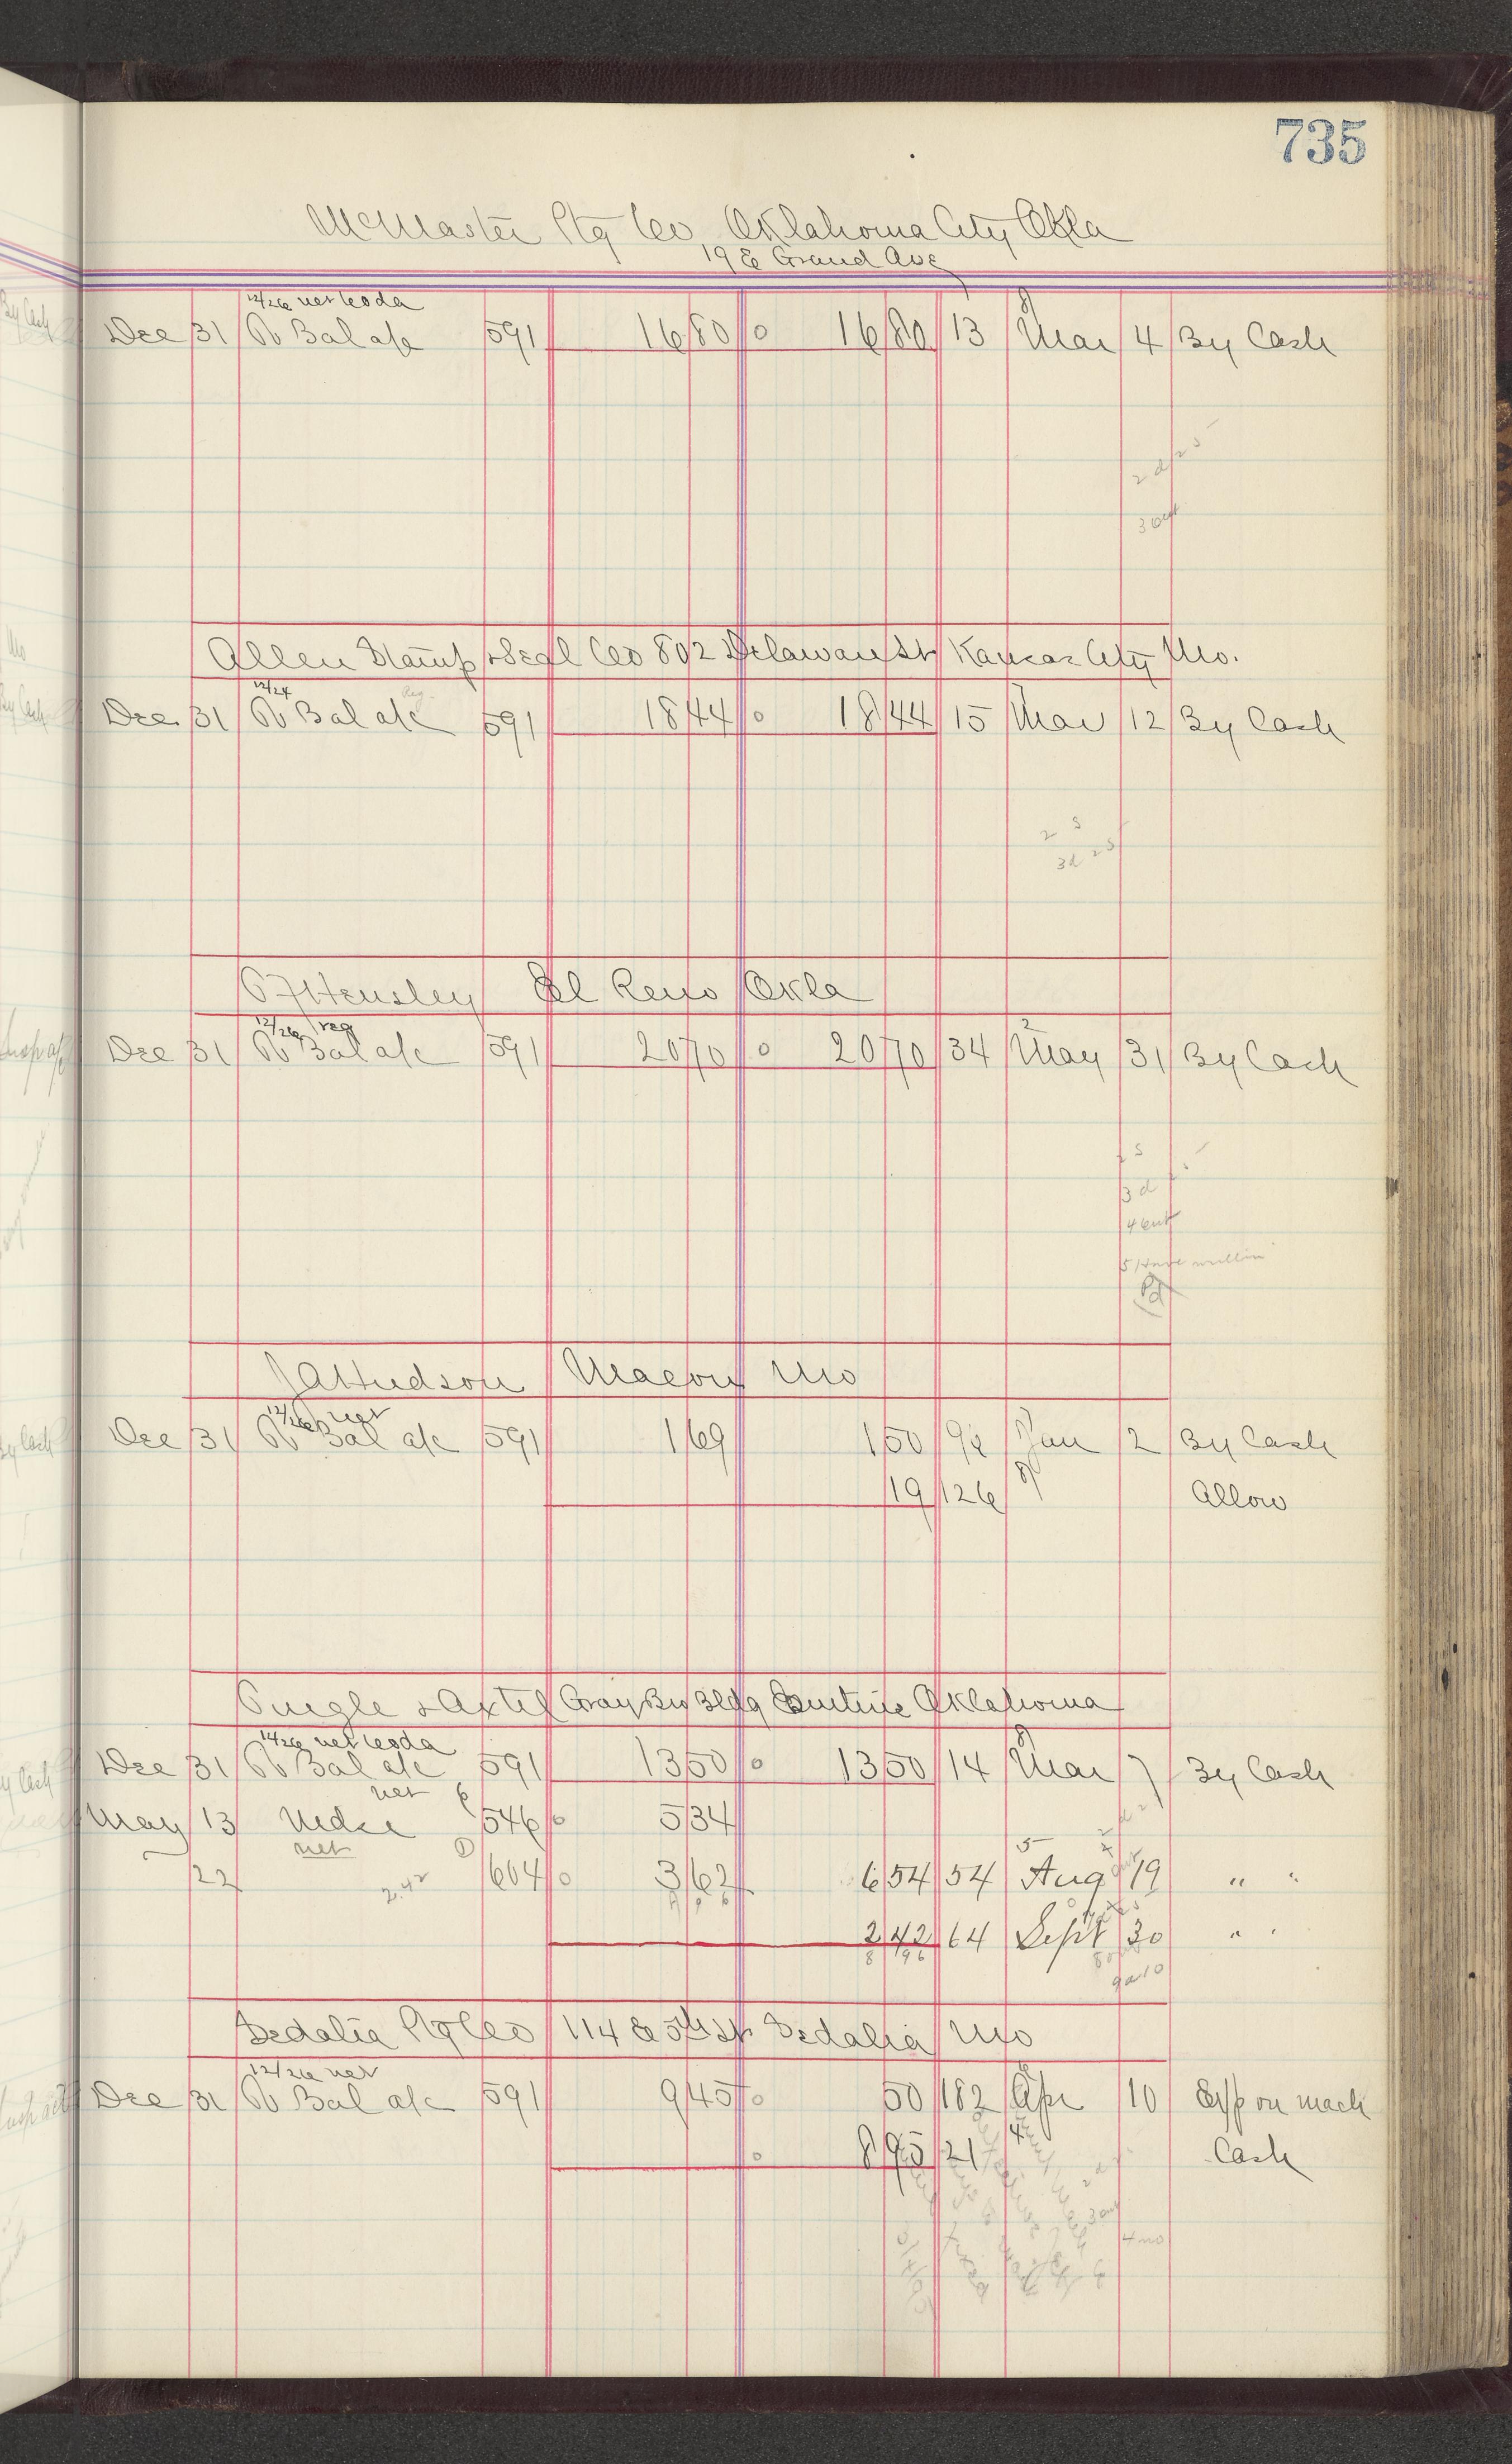 735
McMaster Ptg Co Oklahoma City Okla
19 E Grand Ave
12/26 net
Dec 31 Bal a/c 591 16 80 0 16 80 13 Mar 4 By Cash
2 d
3
Allen Stamp & Seal Co 802 Delaware St Kansas City Mo.
12/24
Dec 31 Bal a/c 591 18 44 0 18 44 15 Mar 12 By Cash
2 s
3d 25
Hensley El Reno Okla
12/26 reg
Dec 31 Bal a/c 591 20 70 0 20 70 34 May 31 By Cash
s
3 d
4
5
Pd
JA Hudson Macon Mo
12/26 net
Dec 31 Bal a/c 591 1 69 1 50 Jan 2 By Cash
19 126 Allow
& Axtel Gray Bro Bldg Oklahoma
net
Dec 31 Bal a/c 591 13 50 0 13 50 14 Mar 7 By Cash
net
May 13 Mdse 546 0 5 34
net
22 2.42 604 0 3 62 6 54 54 Aug 19 " "
8 96
2 42 64 Sept 30 " "
8 96
Sedalia Ptg Co 114 E 5th St Sedalia Mo
12/26 net
Dec 31 Bal a/c 591 9 45 0 50 182 Apr 10 Exp on mach
0 8 95 21 4 Cash
2 d
4 no